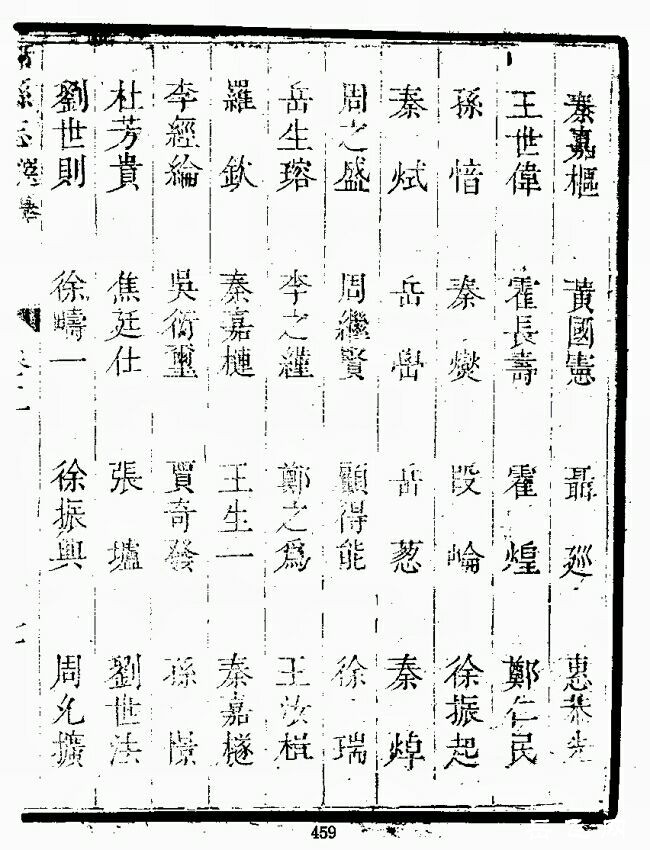 秦嘉樞 黃國憲 聶廵 惠恭先
王世偉 霍長壽 霍煌 鄭仁民
孫愔 秦爕 段崘 徐振起
秦烒 岳嶨 岳葱 秦焯
周之盛 周繼賢 顧得能 徐瑞
岳生瑢 李之 鄭之爲 王汝
羅欽 秦嘉槤 王生一 秦嘉檖
李經綸 吳衍璽 賈奇發 孫憬
杜芳貴 焦廷仕 張壚 劉世法
劉世則 徐疇一 徐振興 周允壙
459